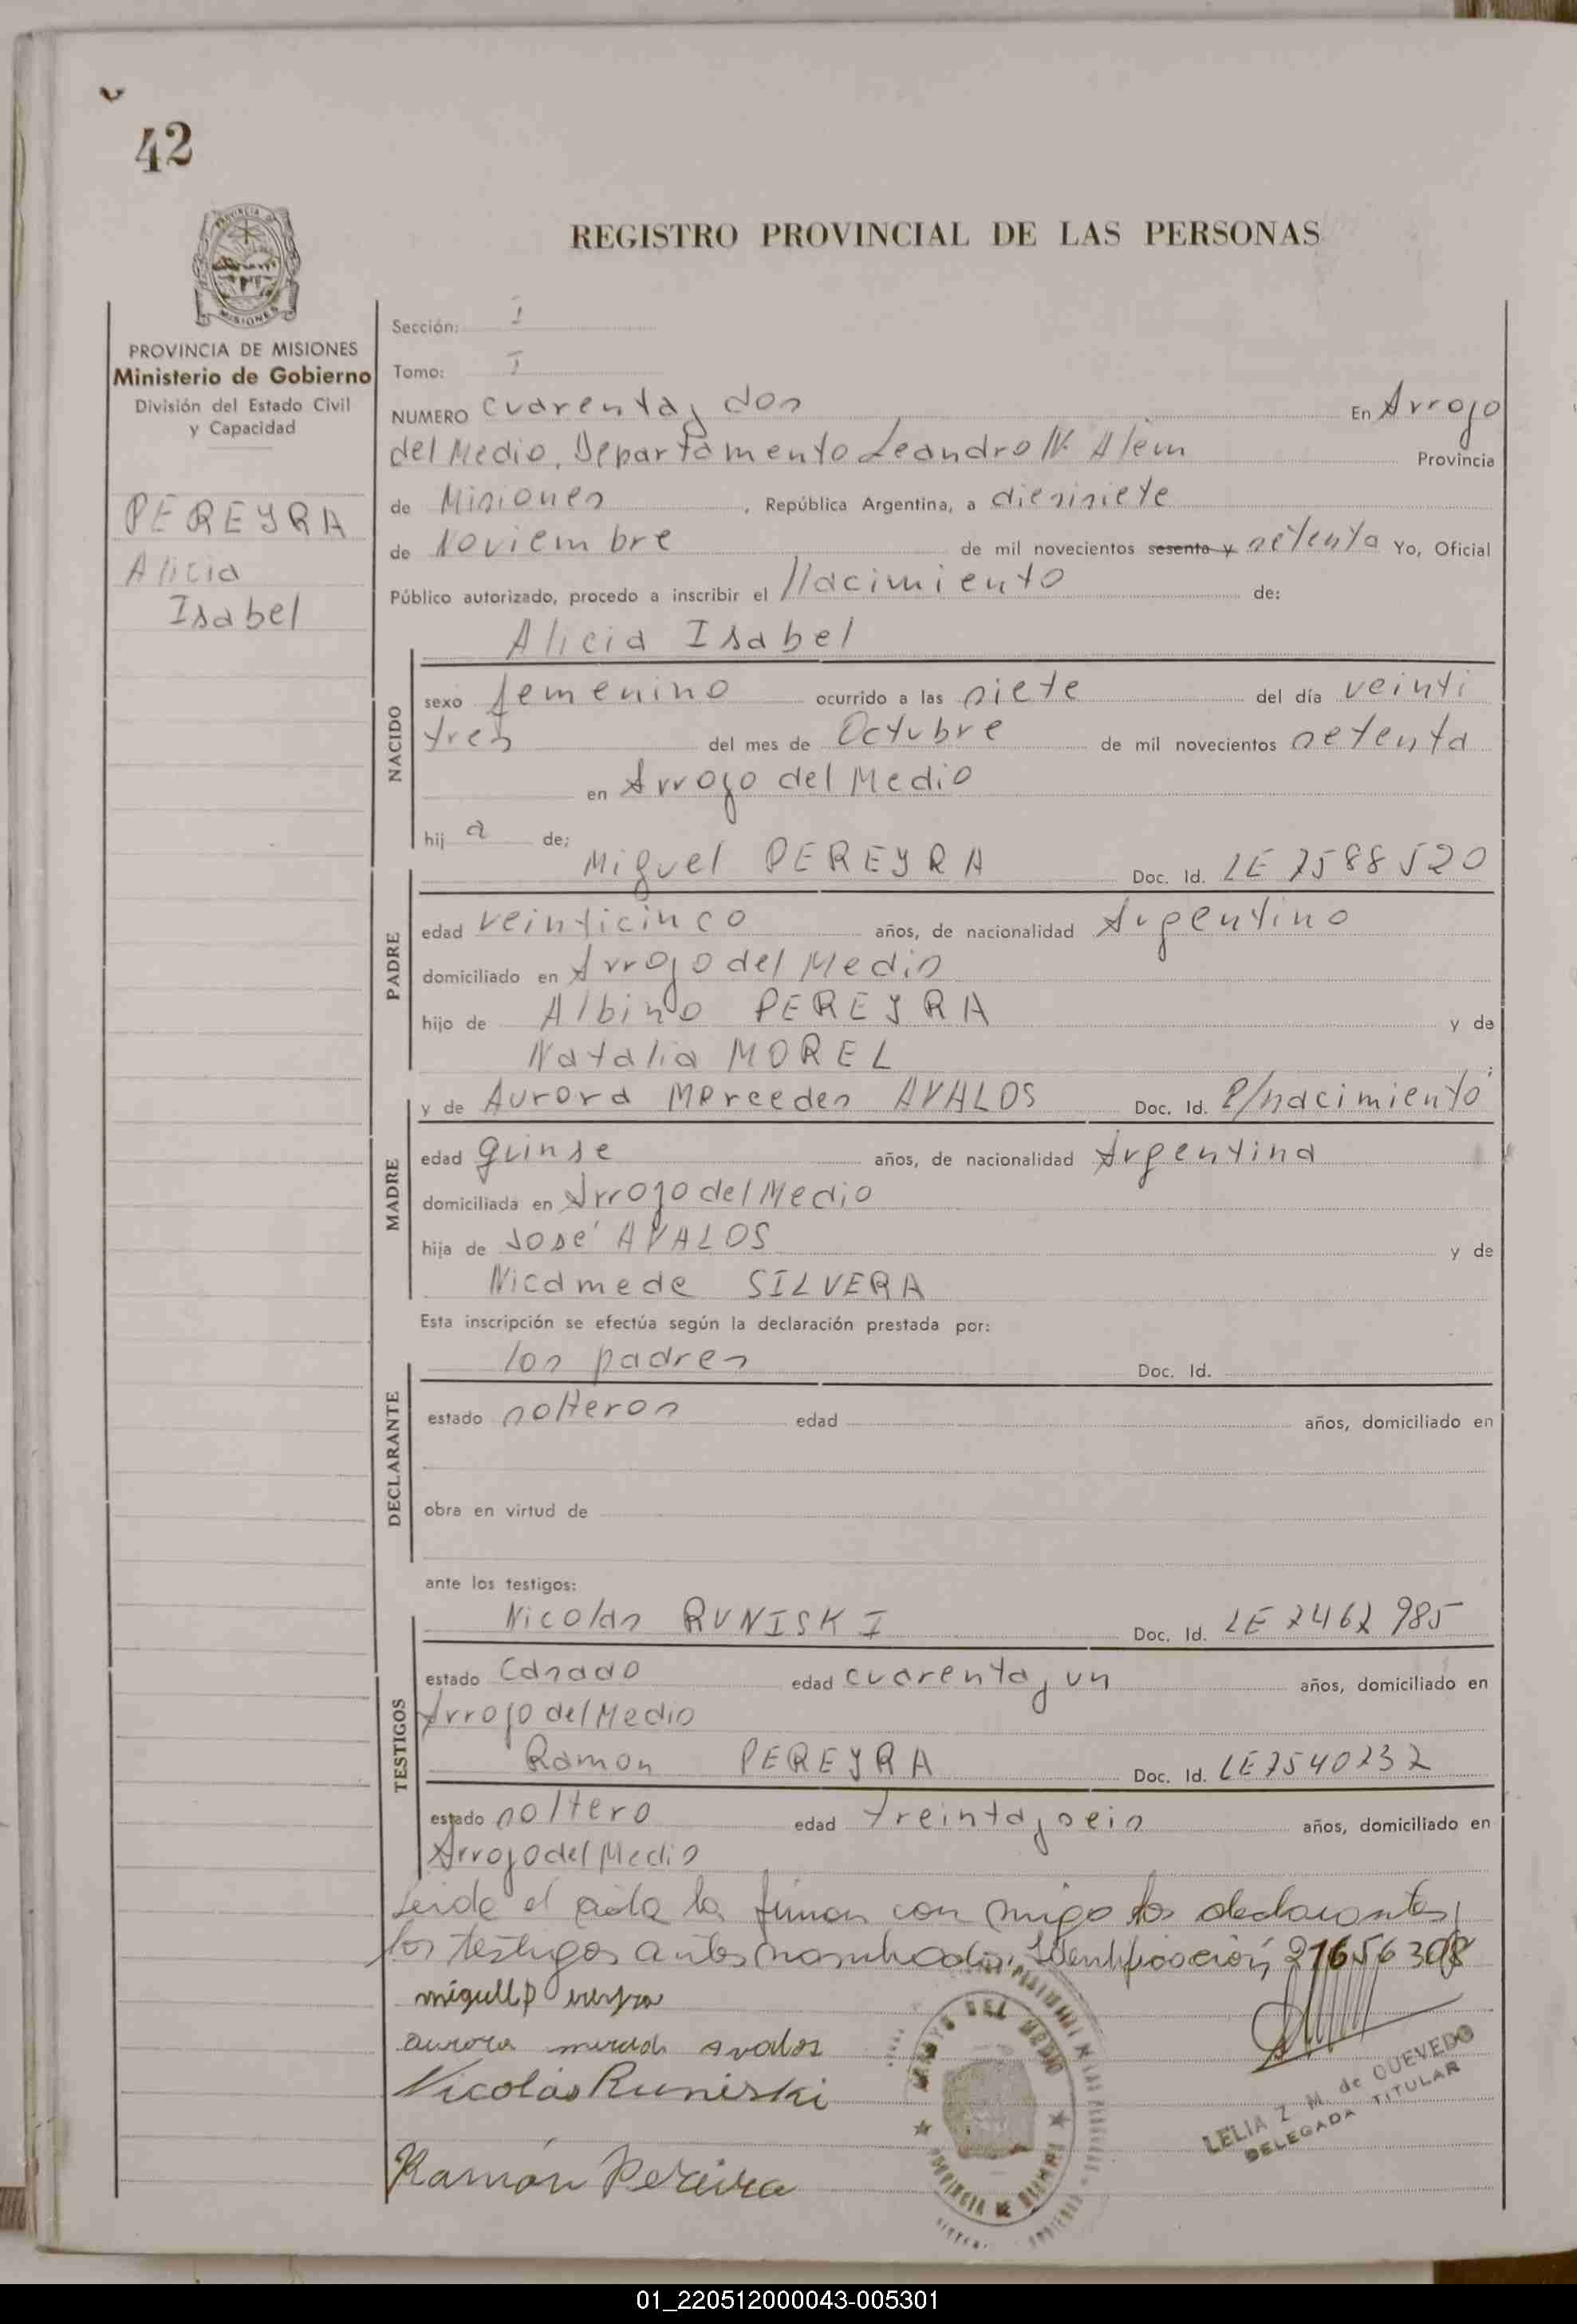 42
REGISTRO PROVINCIAL DE LAS PERSONAS
PROVINCIA DE MISIONES
Ministerio de Gobierno
División del Estado Civil
y Capacidad
PEREYRA
Alicia
Isabel
Sección: I
Tomo: I
NUMERO cuarenta y dos En Arroyo
del Medio, Departamento Leandro N. Alem Provincia
de Misiones, República Argentina, a diesisiete
de Noviembre de mil novecientos sesenta y setenta Yo, Oficial
Público autorizado, procedo a inscribir el Nacimiento de:
Alicia Isabel
NACIDO
sexo femenino ocurrido a las siete del día veinti
tres del mes de Octubre de mil novecientos setenta
en Arroyo del Medio
hij a de;
Miguel PEREYRA Doc. Id. LE 7588520
PADRE
edad veinticinco años, de nacionalidad Argentino
domiciliado en Arroyo del Medio
hijo de Albino PEREYRA y de
Natalia MOREL ;
y de Aurora Mercedes AVALOS Doc. Id. P/nacimiento
MADRE
edad quinse años, de nacionalidad Argentina
domiciliada en Arroyo del Medio
hija de José AVALOS y de
Nicamede SILVERA
Esta inscripción se efectúa según la declaración prestada por:
los padres Doc. Id.
DECLARANTE
estado solteros edad años, domiciliado en
obra en virtud de
ante los testigos:
Nicolas RUNISKI Doc. Id. LE 7462985
TESTIGOS
estado casado edad cuarenta y un años, domiciliado en
Arroyo del Medio
Ramon PEREYRA Doc. Id. LE 7540232
estado soltero edad treinta y seis años, domiciliado en
Arroyo del Medio
Leida el acta la firman con migo los declarantes y
los testigos antes nombrados. Identificación, 21656308
aurora avalos
Nicolás Runiski
Ramón Pereira
ARROYO DEL MEDIO
PROVINCIA
LELIA Z. M. de QUEVEDO
DELEGADA TITULAR
01_220512000043-005301